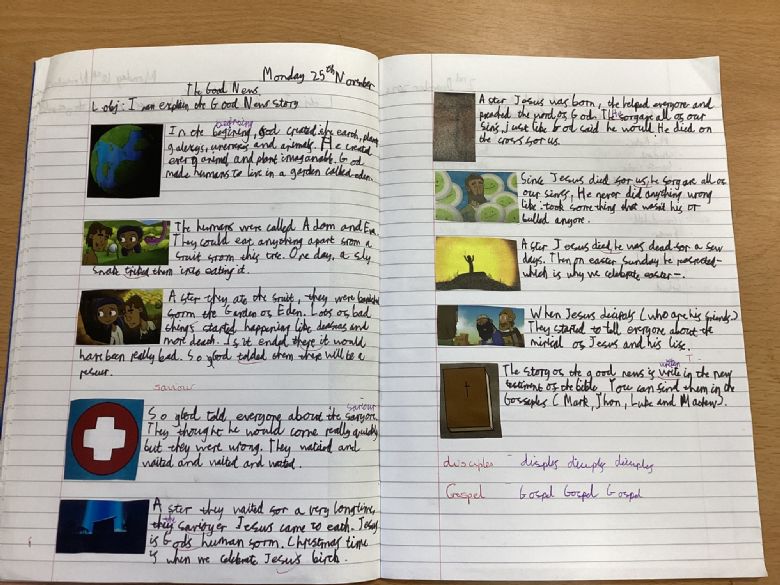 Monday 25th November
The Good News.
L.obj: I can explain the Good News story
beginning
In the begining, God created the earth, planes
galexys, unerexis and animals. He created
every animal and plant imaganable. God
made humans to live in a garden called eden.
The humans were called Adom and Eve.
They could eat anything apart from a
fruit from this tree. One day, a sly
snake tricked them into eating it.
After they ate the fruit, they were banished
form the Garden of Eden. Lots of bad
things started happening like deseases and
more death. If it ended there it would
have been really bad. So god tolded them there will be a
rescuer.
saviour
saviour
So god told everyone about the savyore.
They thought he would come really quickly
but they were wrong. They waited and
waited and waited and waited.
After they waited for a very long time,
the
they savioyer Jesus came to eath. Jesus
is Gods human form. Christmas time
is when we celebrate Jesus birth.
After Jesus was born, the helped everyone and
preached the word of God. The forgave all of our
He
sins, just like God said he would. He died on
the cross for us.
Since Jesus died for us, he forgave all of
our sines. He never did anything wrong
like: took something that wasn't his or
bulled anyone.
After Jesus died, he was dead for a few
days. Then on easter sunday he
which is why we celebrate easter-.
When Jesus dicipals (who are his friends.)
They started to tell everyone about the
mirical of Jesus and his life.
T
written
The story of the good news is write in the new
testiment of the bible. You can find them in the
Gosseples (Mark, Jhon, Luke and Mathew).
disciples - disiples diciples diciples
Gospel - Gospel Gospel Gospel